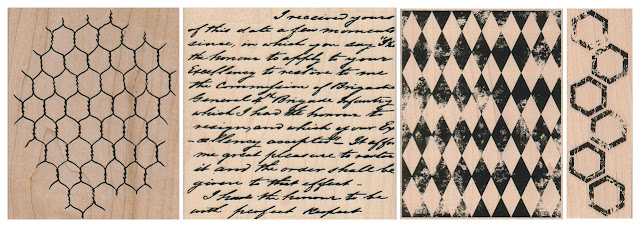 I received yours
of this date a few moments
since, in which you say "The
the honour to apply to your
Excellency to restore to me
the Commission of Brigade
General 4th Brigade Infantry
which I had the honour to
resign, and which you by
me great pleasure to restore
it and the order shall be
given to that effect -
I have the honour to be
with perfect respect